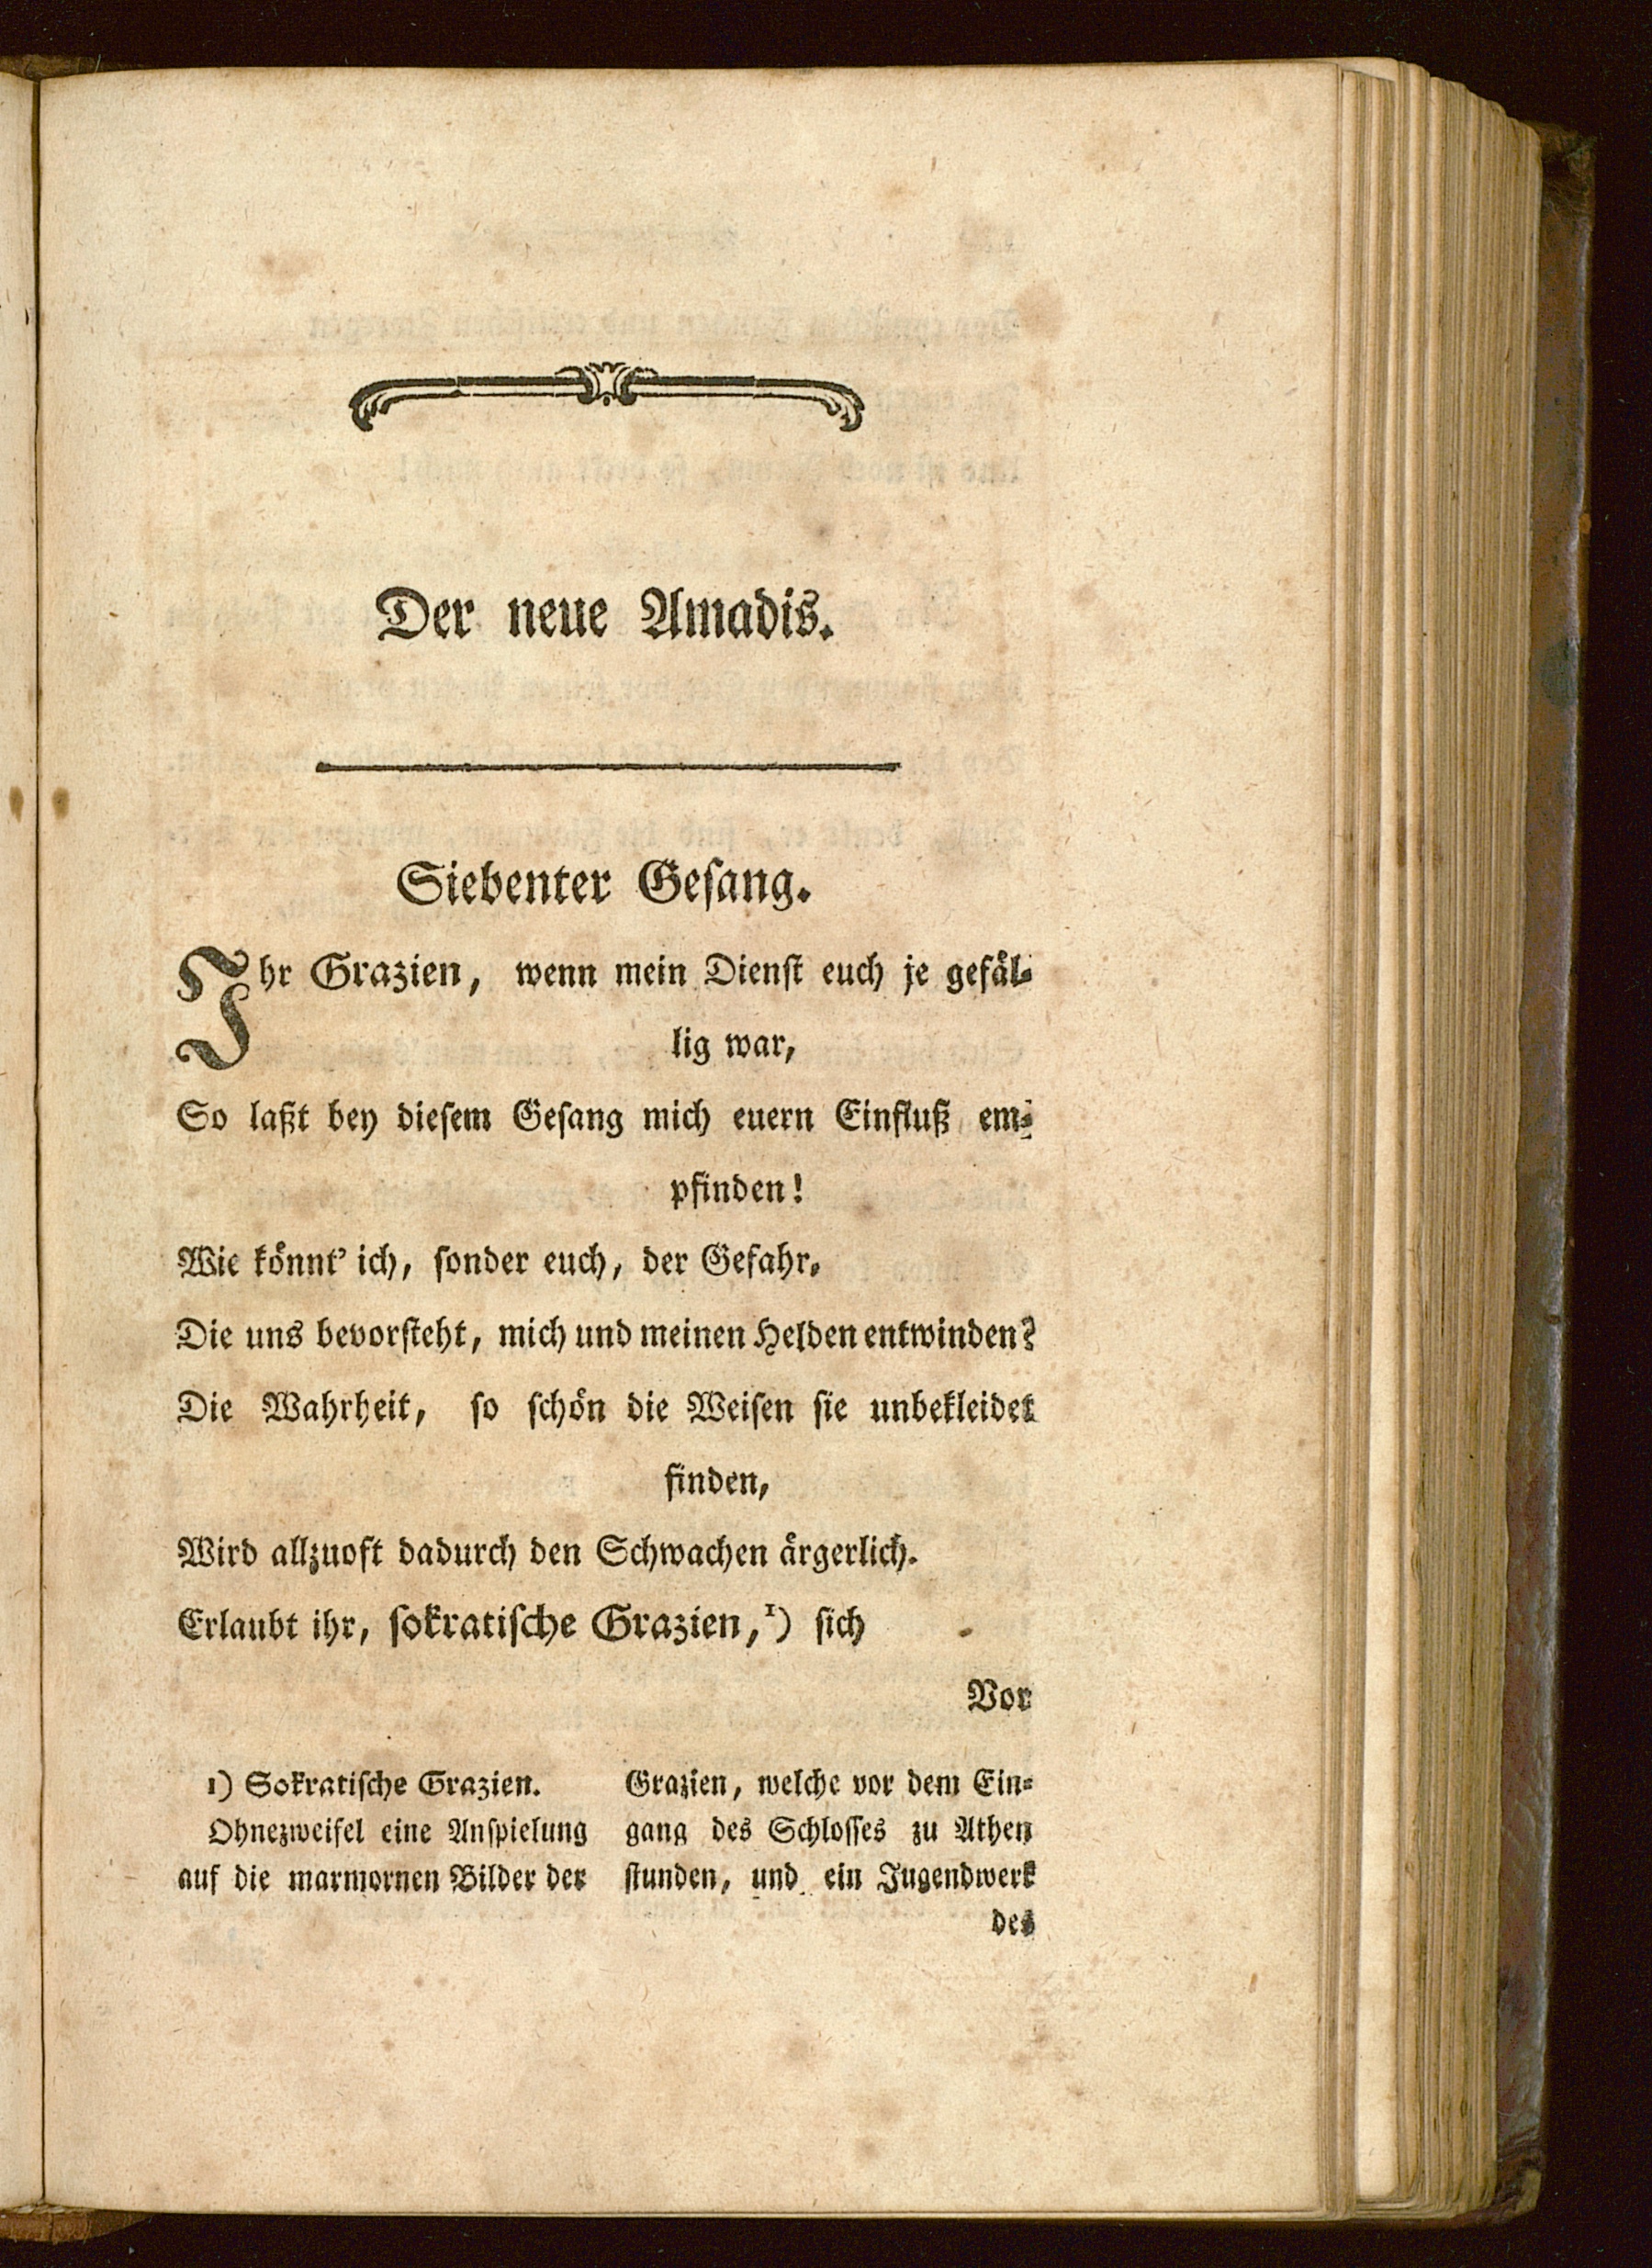 Der neue Amadis.
Siebenter Gesang.
Ihr Grazien, wenn mein Dienst euch je gefäl-
lig war,
So laßt bey diesem Gesang mich euern Einfluß em-
pfinden!
Wie könnt' ich, sonder euch, der Gefahr,
Die uns bevorsteht, mich und meinen Helden entwinden?
Die Wahrheit, so schön die Weisen sie unbekleidet
finden,
Wird allzuoft dadurch den Schwachen ärgerlich.
Erlaubt ihr, sokratische Grazien, 1) sich
Vor
1) Sokratische Grazien.
Ohnezweifel eine Anspielung
auf die marmornen Bilder der
Grazien, welche vor dem Ein-
gang des Schlosses zu Athen
stunden, und ein Jugendwerk
des